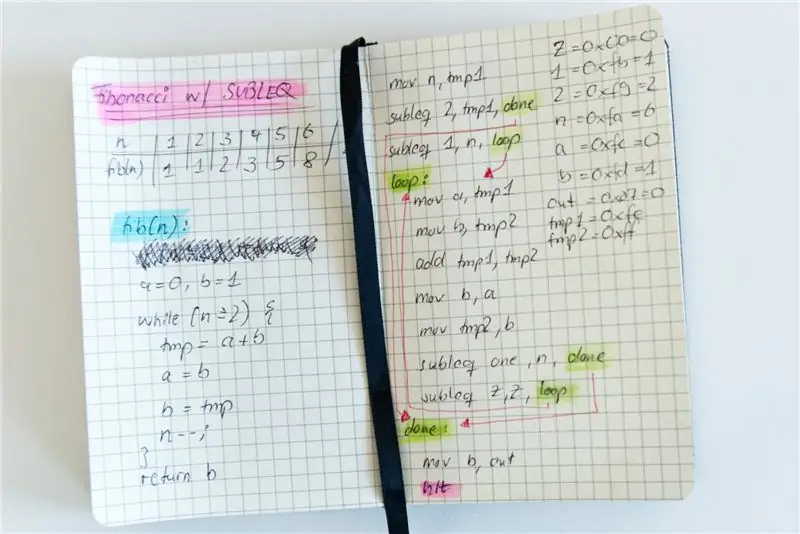 fibonacci w/ SUBLEQ
n | 1 | 2 | 3 | 4 | 5 | 6
fib(n) | 1 | 1 | 2 | 3 | 5 | 8
fib(n):
a=0, b=1
while (n≥2) {
tmp = a+b
a = b
b = tmp
n--;
}
return b
mov n, tmp1
subleq 2, tmp1, done
subleq 1, n, loop
loop:
mov a, tmp1
mov b, tmp2
add tmp1, tmp2
mov b, a
mov tmp2, b
subleq one, n, done
subleq Z, Z, loop
done:
mov b, out
hlt
Z = 0x00 = 0
1 = 0xfb = 1
2 = 0xf9 = 2
n = 0xfa = 6
a = 0xfc = 0
b = 0xfd = 1
out = = 0
tmp1 = 0xfe
tmp2 = 0xff